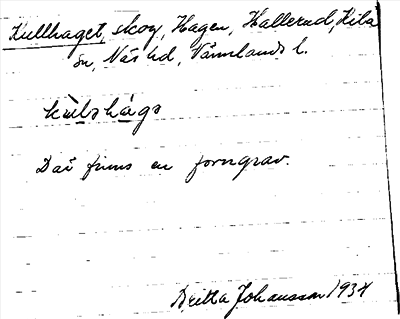 Kullhaget, skog, Hagen, Hallerud, Kila
sn, Näs hd, Värmlands l.
Där finns en forngrav.
Johansson 1934